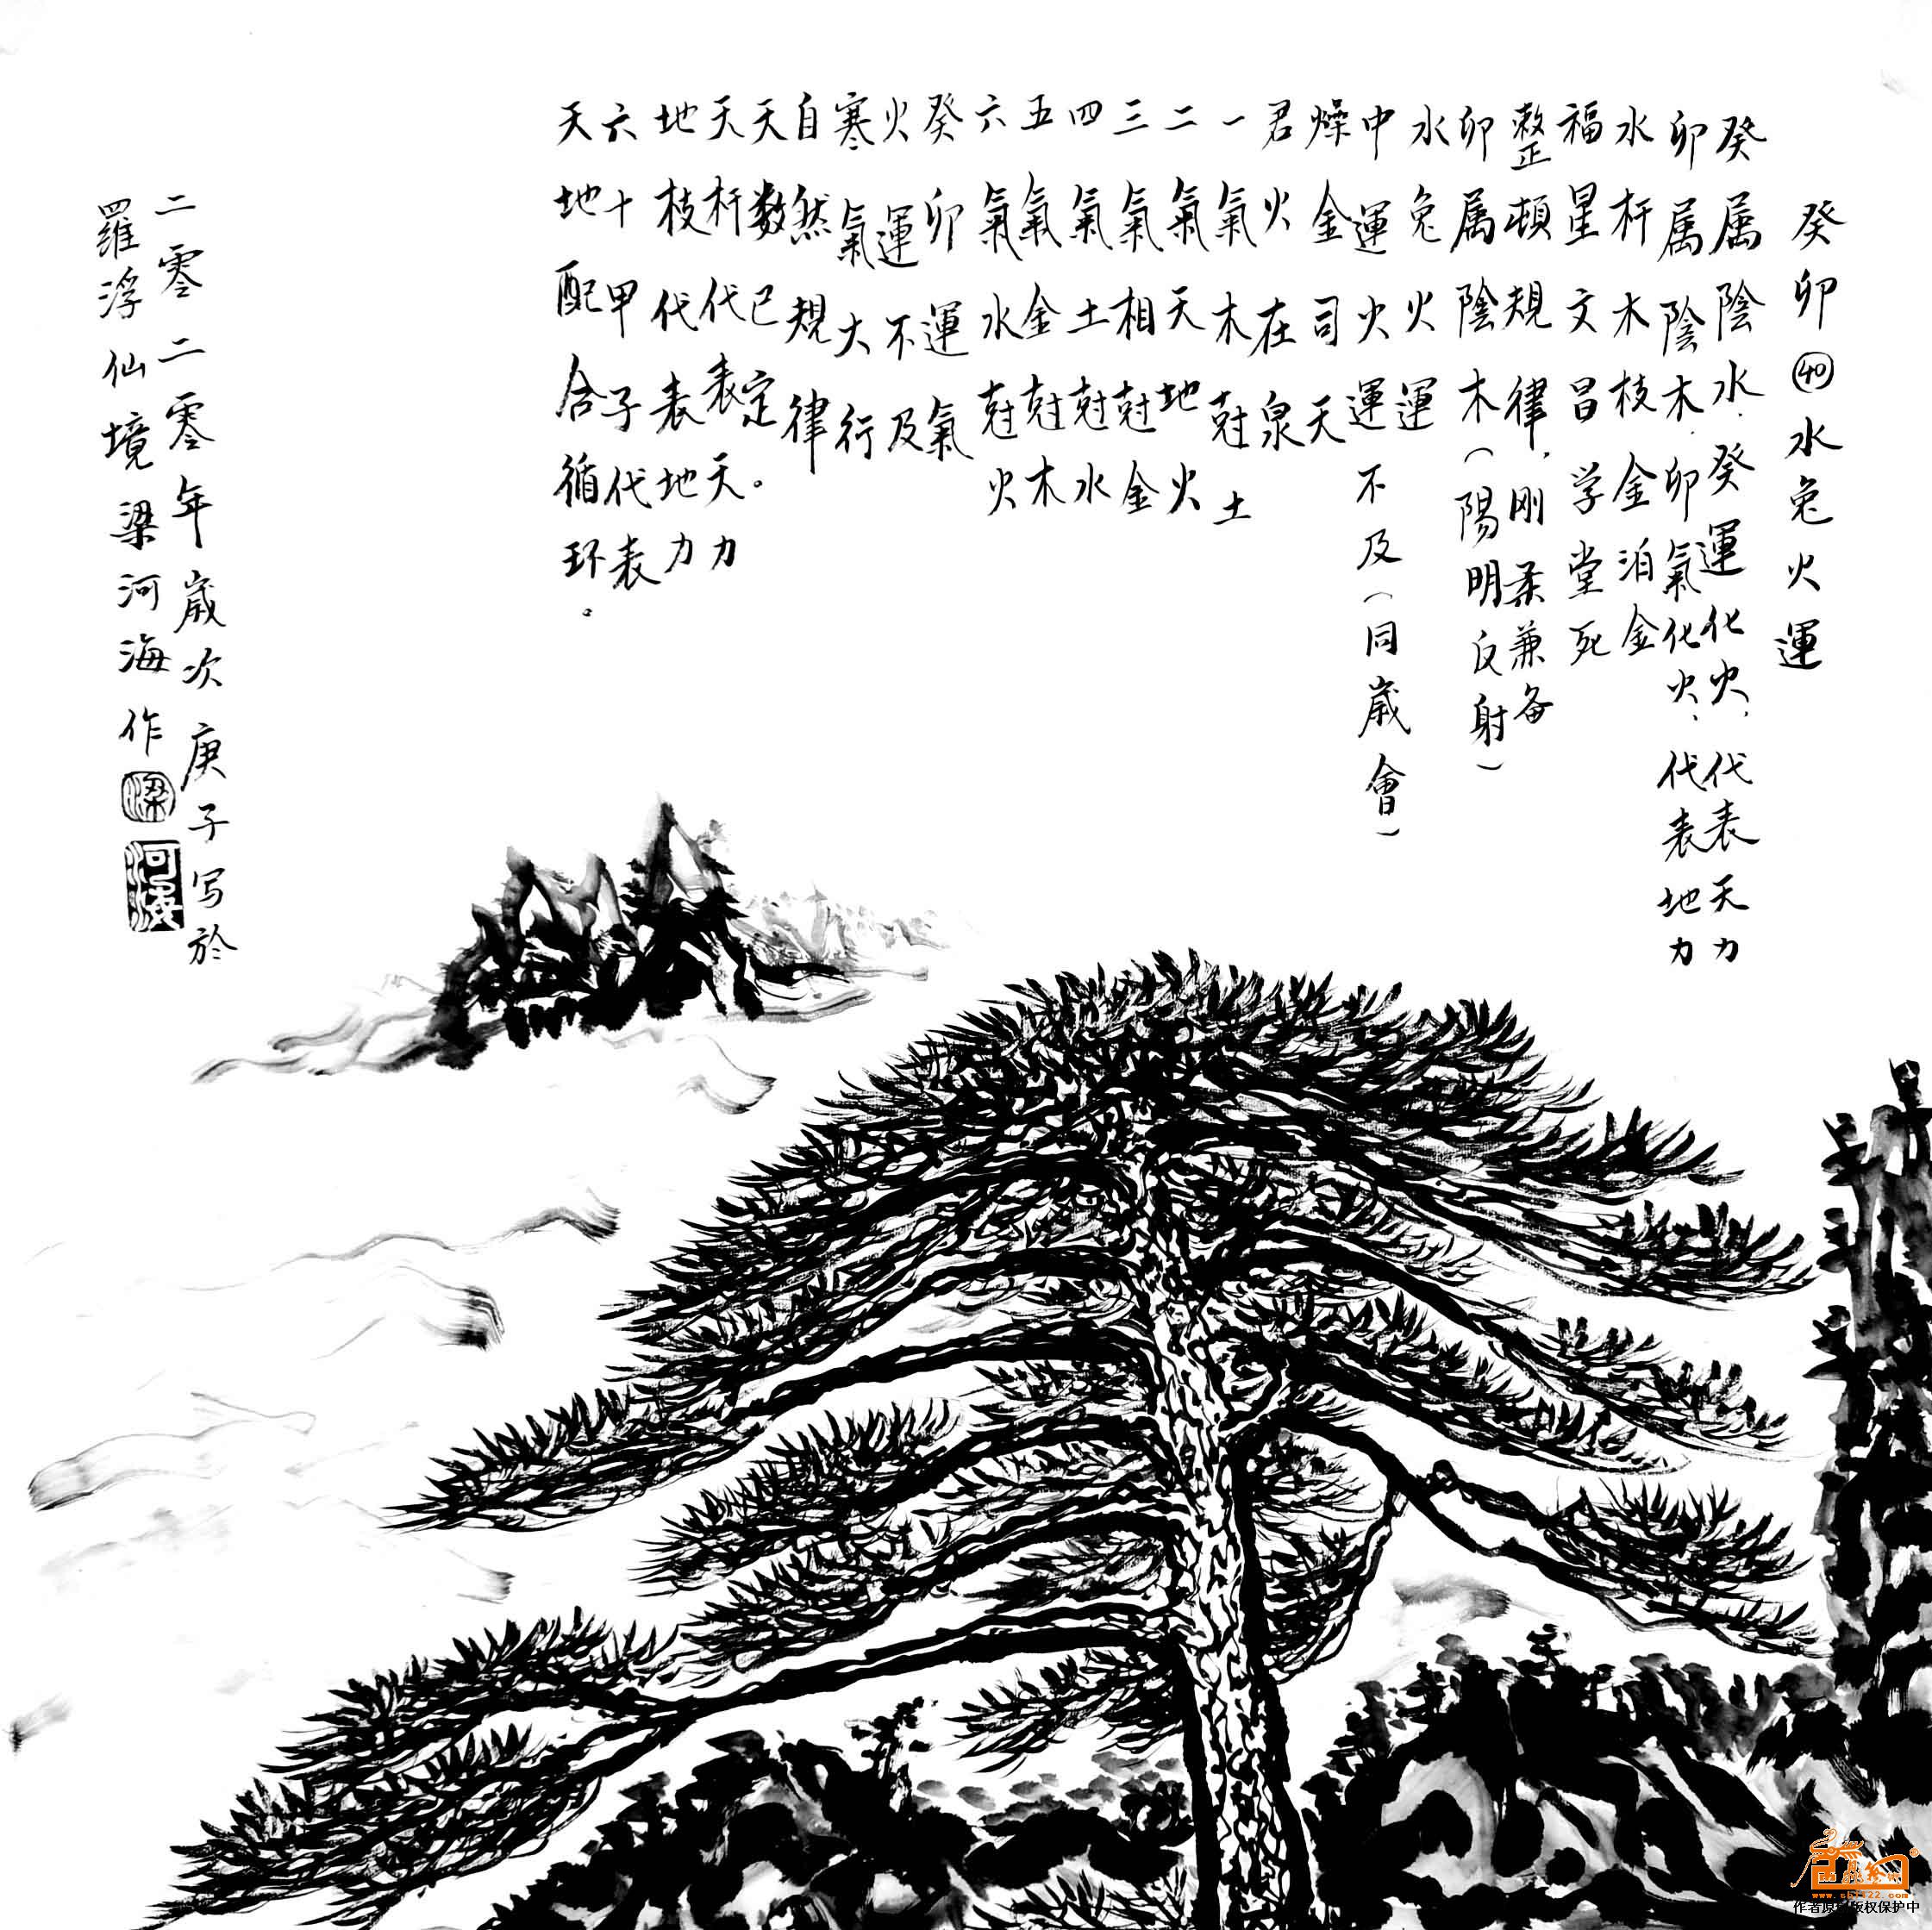 癸卯㊵水兔火運
癸属陰水.癸運化火、代表天力
卯属陰木.卯氣化火、代表地力
水杆木枝金泊金
福星文昌学堂死
整頓規律,刚柔兼备
卯属陰木(陽明反射)
水兔火運
中運火運不及(同歲會)
燥金司天
君火在泉
一氣木尅土
二氣天地火
三氣相尅金
四氣土尅水
五氣金尅木
六氣水尅火
癸卯運氣
火運不及
寒氣大行
自然規律
天数已定。
天杆代表天力
地枝代表地力
六十甲子代表
天地配合循环。
二零二零年歲次庚子写於
羅浮仙境梁河海作
梁
河海
www.sb1122.com
作者原创版权保护中